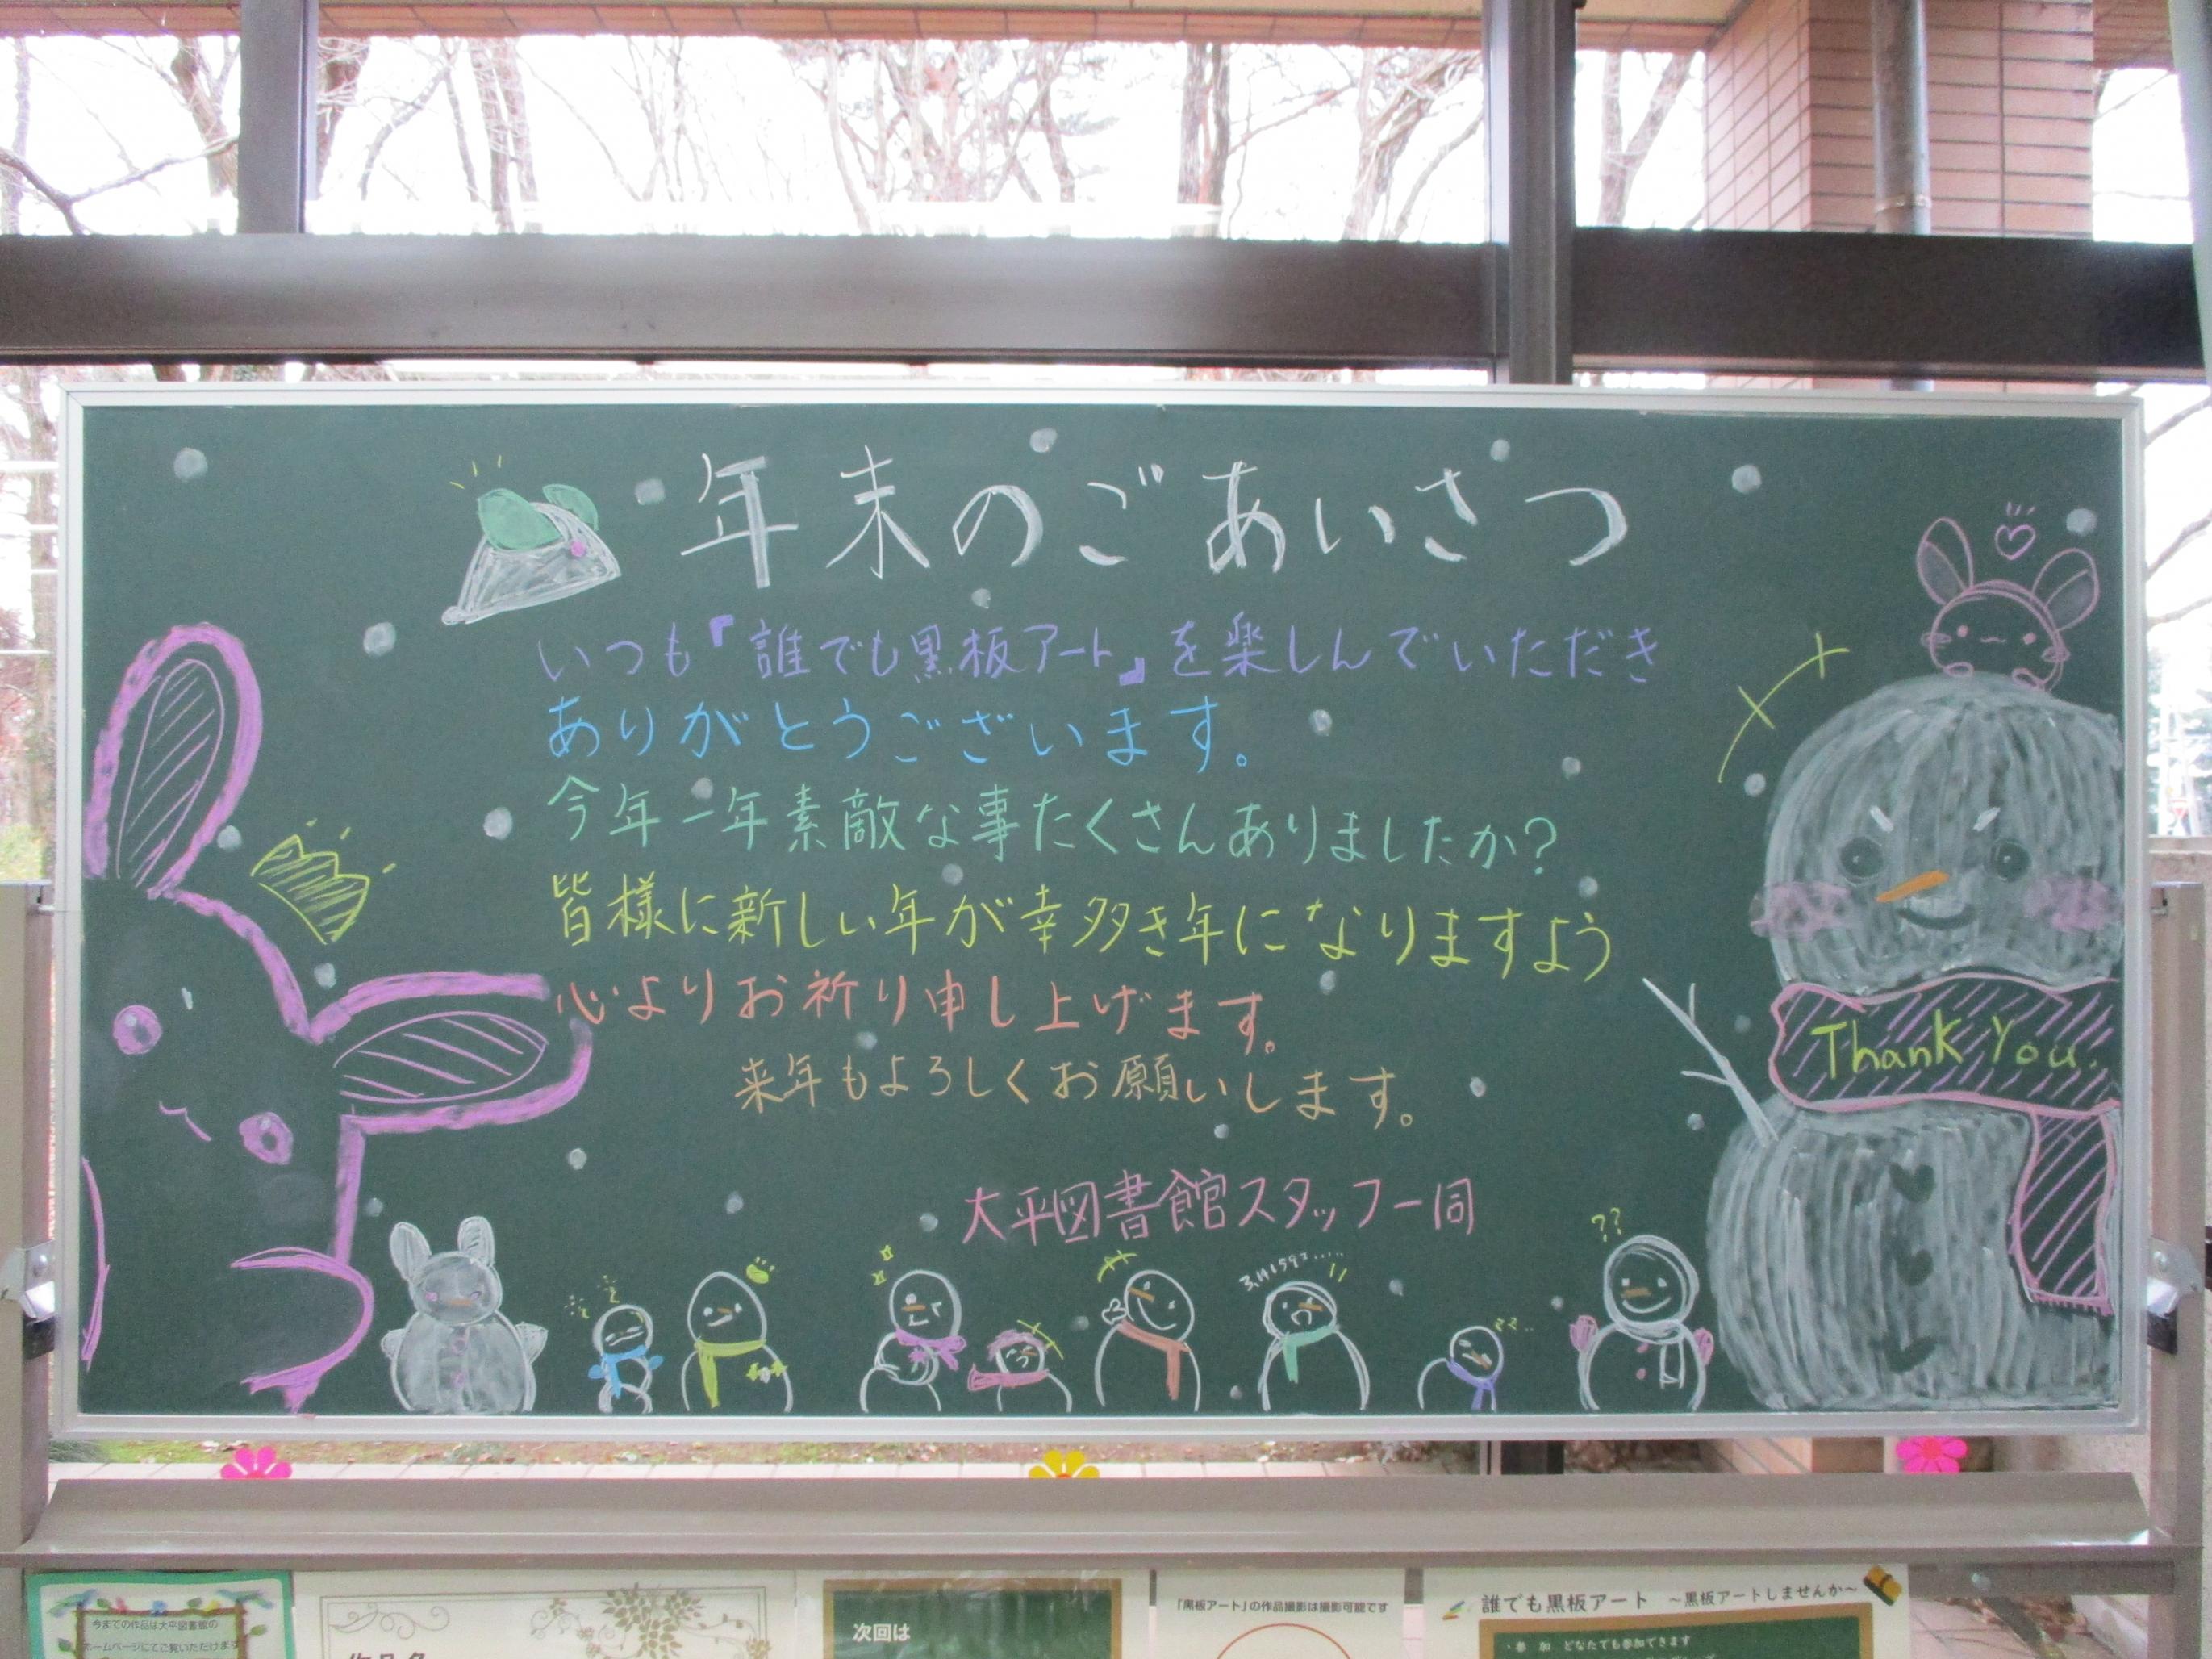 年末のごあいさつ
いつも『誰でも黒板アート』を楽しんでいただき
ありがとうございます。
今年一年素敵な事たくさんありましたか?
皆様に新しい年が幸多き年になりますよう
心よりお祈り申し上げます。
来年もよろしくお願いします。
大平図書館スタッフ一同
Thank You.
3.141592.....
??
今までの作品は大平図書館の
ホームページにてご覧いただけます
次回は
「黒板アート」の作品撮影は撮影可能です
誰でも黒板アート ～黒板アートしませんか～
・参 加 どなたでも参加できます